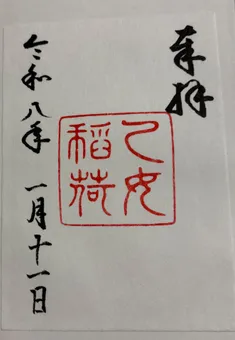 奉拝
乙女
稲荷
令和八年 一月十一日